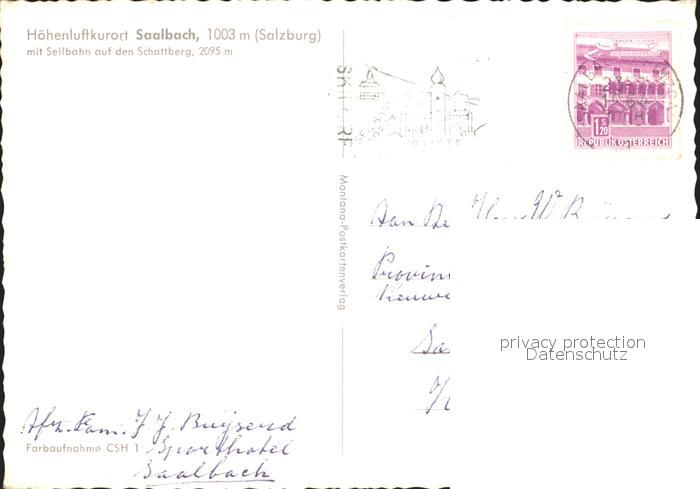 Höhenluftkurort Saalbach, 1003 m (Salzburg)
mit Seilbahn auf den Schattberg, 2095 m
1 S 20
REPUBLIK ÖSTERREICH
Montana-Postkartenverlag
Aan De
Provin
Nieuwe
privacy protection
Datenschutz
Afz. Fam. J. J. Buijserd
Farbaufnahme CSH 1 Sporthotel
Saalbach